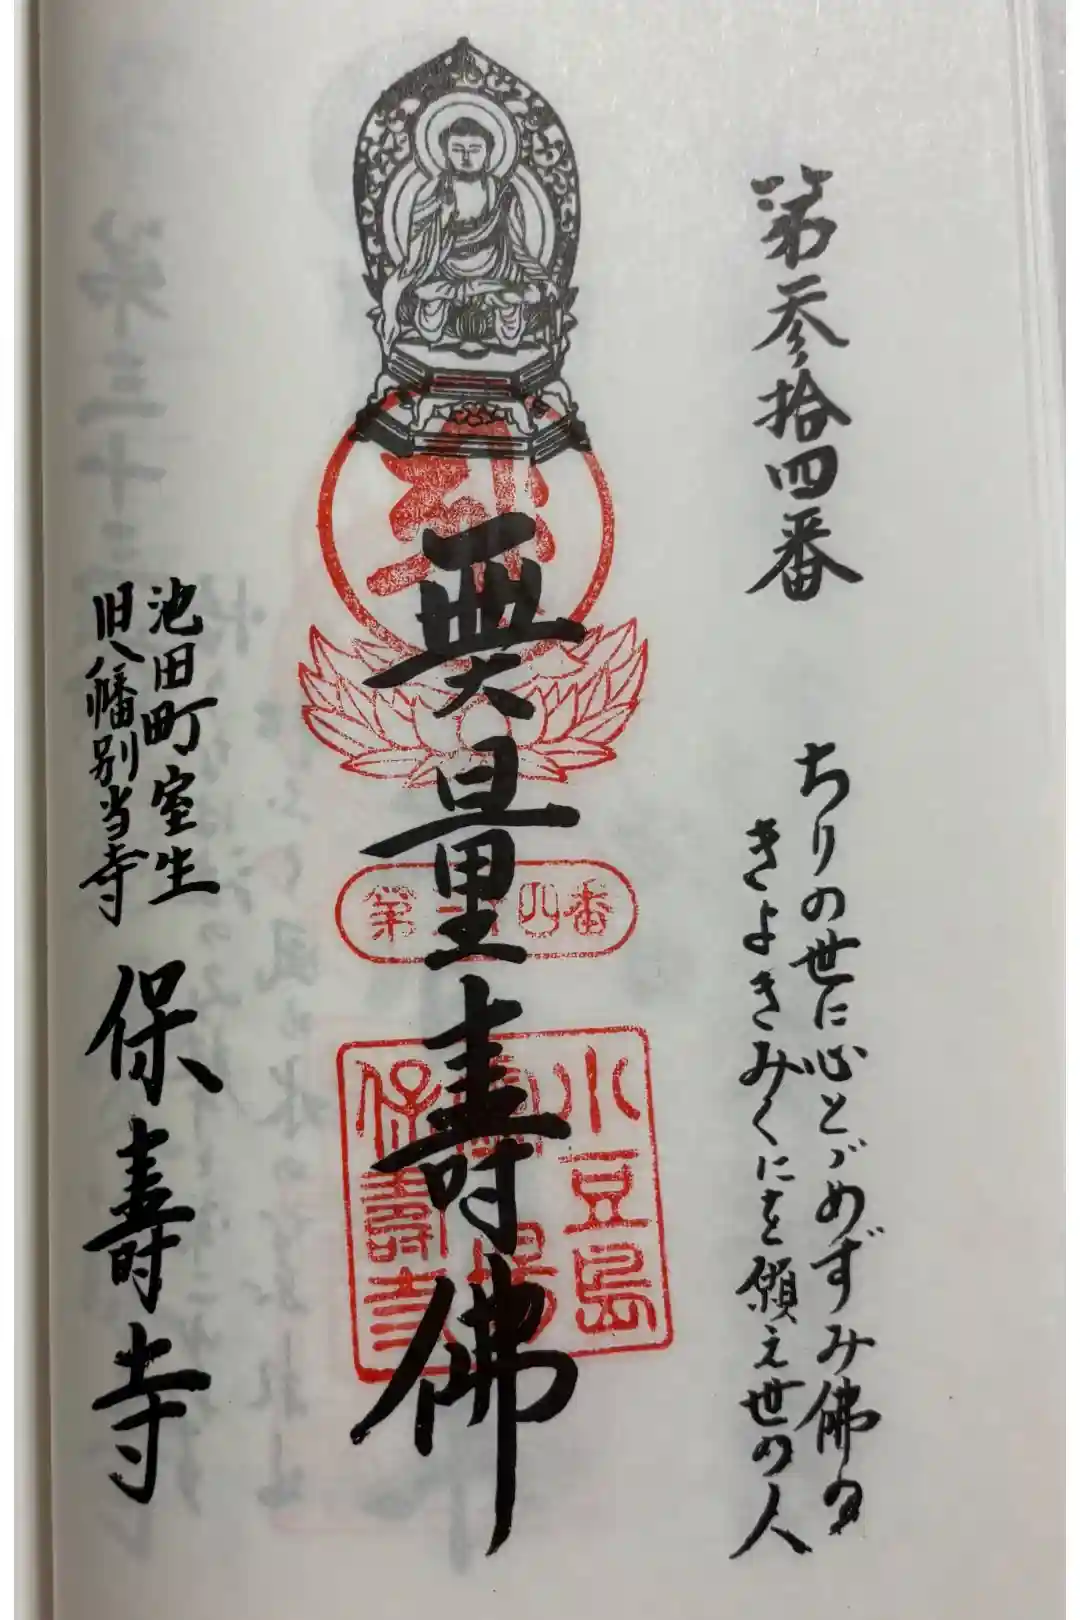 第参拾四番
ちりの世に心とゞめずみ佛の
きよきみくにを願え世の人
無量壽佛
第三十四番
小豆島
保壽寺
池田町室生
旧八幡別当寺
保壽寺